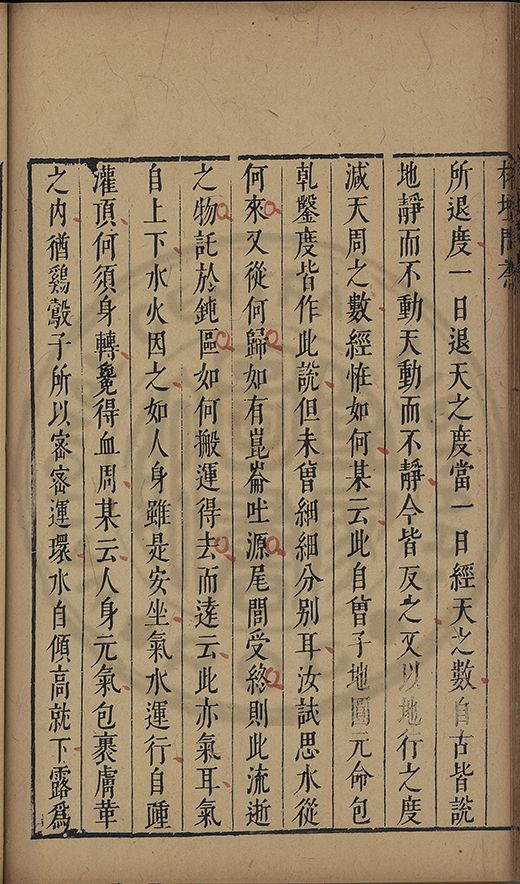 榕壇問業
所退度一日退天之度當一日經天之數自古皆說
地靜而不動天動而不靜今皆反之又以地行之度
減天周之數經惟如何某云此自曾子地圓元命包
乾鑿度皆作此說但未曾細細分別耳汝試思水從
何來又從何歸如有崑崙吐源尾閭受終則此流逝
之物託於鈍區如何搬運得去而遠云此亦氣耳氣
自上下水火因之如人身雖是安坐氣水運行自踵
灌頂何須身轉覺得血周某云人身元氣包裹膚革
之内猶鷄鷇子所以密密運環水自傾高就下露爲